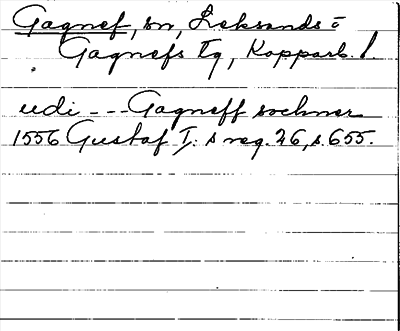 Gagnef, sn, Leksands o
Gagnefs tg, Kopparb. l.
udi --- Gagneff sochner
1556 Gustaf I:s reg. 26, s. 655.